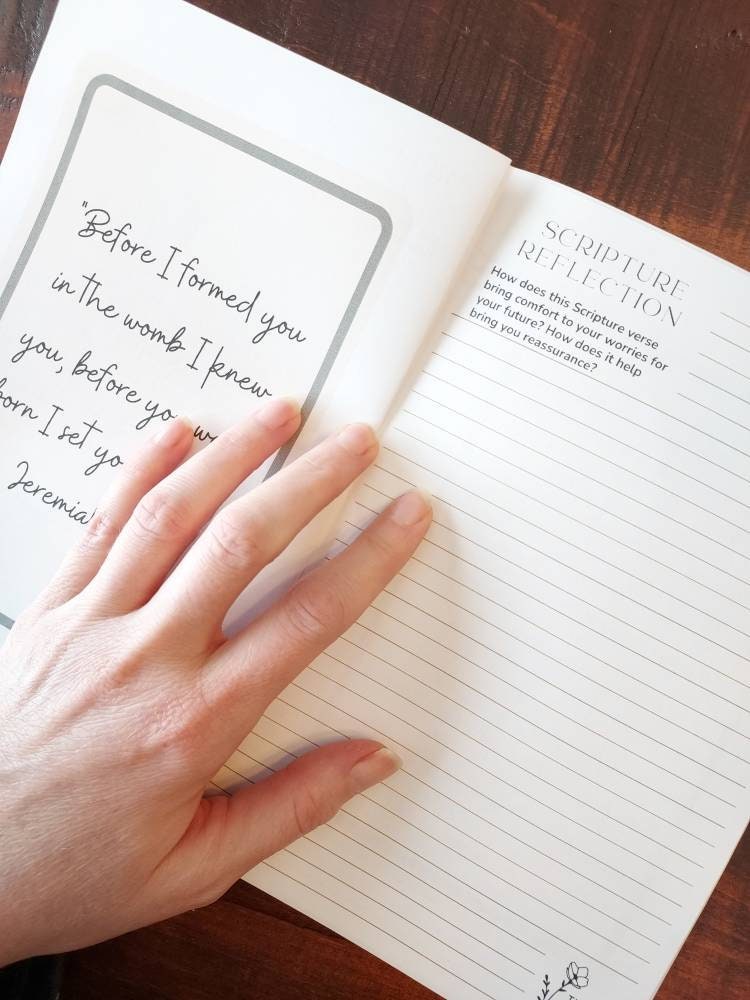 "Before I formed you
in the womb I knew
you, before yo w
born I set yo
Jeremia
SCRIPTURE
REFLECTION
How does this Scripture verse
bring comfort to your worries for
your future? How does it help
bring you reassurance?